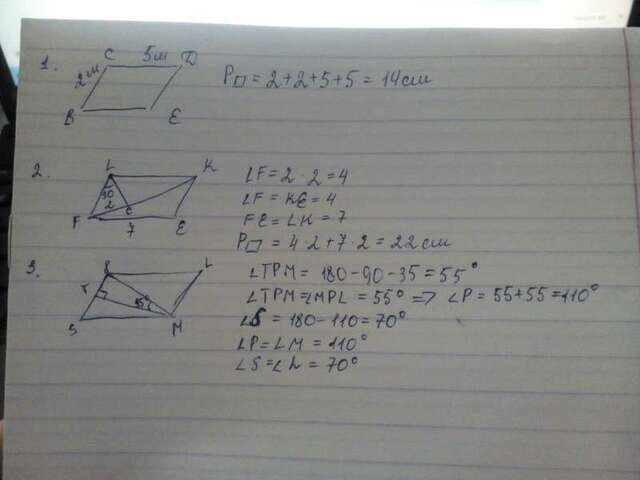 1.
C 5м D
2м
B E
P▱ = 2+2+5+5 = 14см
2.
L K
30
2 C
F 7 E
LF = 2 · 2 = 4
LF = KE = 4
FE = LK = 7
P▱ = 4·2+7·2 = 22см
3.
L
T
35°
S M
∠TPM = 180-90-35 = 55°
∠TPM = ∠MPL = 55° => ∠P = 55+55 = 110°
∠S = 180-110 = 70°
∠P = ∠M = 110°
∠S = ∠L = 70°